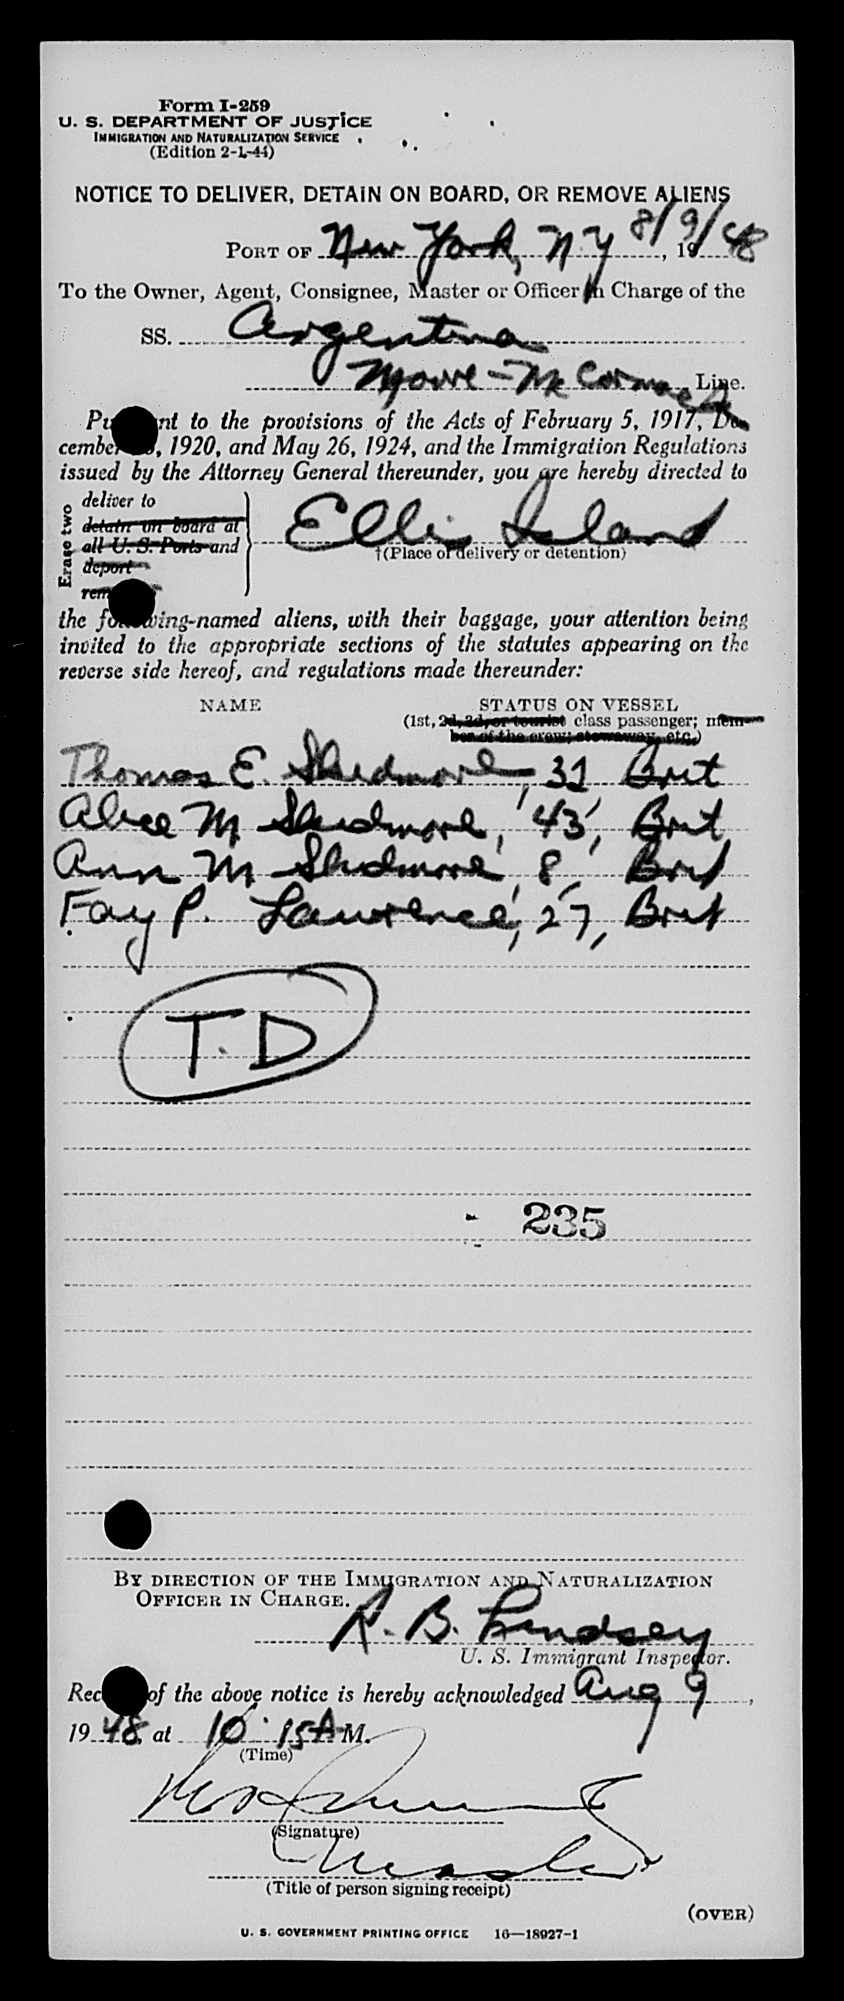 Form I-259
U. S. DEPARTMENT OF JUSTICE
IMMIGRATION AND NATURALIZATION SERVICE
(Edition 2-1-44)
NOTICE TO DELIVER, DETAIN ON BOARD, OR REMOVE ALIENS
PORT OF New York, N.Y 8/9/, 1948
To the Owner, Agent, Consignee, Master or Officer in Charge of the
SS. Argentina
Moore-McCormack Line.
Pu nt to the provisions of the Acts of February 5, 1917, De-
cember , 1920, and May 26, 1924, and the Immigration Regulations
issued by the Attorney General thereunder, you are hereby directed to
Erase two
deliver to
detain on board at
all U. S. Ports and
deport
rem
Ellis Island
†(Place of delivery or detention)
the following-named aliens, with their baggage, your attention being
invited to the appropriate sections of the statutes appearing on the
reverse side hereof, and regulations made thereunder:
NAME STATUS ON VESSEL
(1st, 2d, 3d, or tourist class passenger; mem-
ber of the crew; stowaway, etc.)
Thomas E. Skidmore, 37 Brit
Alice M Skidmore, 43, Brit
Ann M Skidmore, 8, Brit
Fay P. Lawrence, 27, Brit
T.D
235
BY DIRECTION OF THE IMMIGRATION AND NATURALIZATION
OFFICER IN CHARGE.
R. B. Lindsey
U. S. Immigrant Inspector.
Rec of the above notice is hereby acknowledged Aug 9,
1948, at 10:15 A M.
(Time)
(Signature)
Master
(Title of person signing receipt)
(OVER)
U. S. GOVERNMENT PRINTING OFFICE 16—18927-1